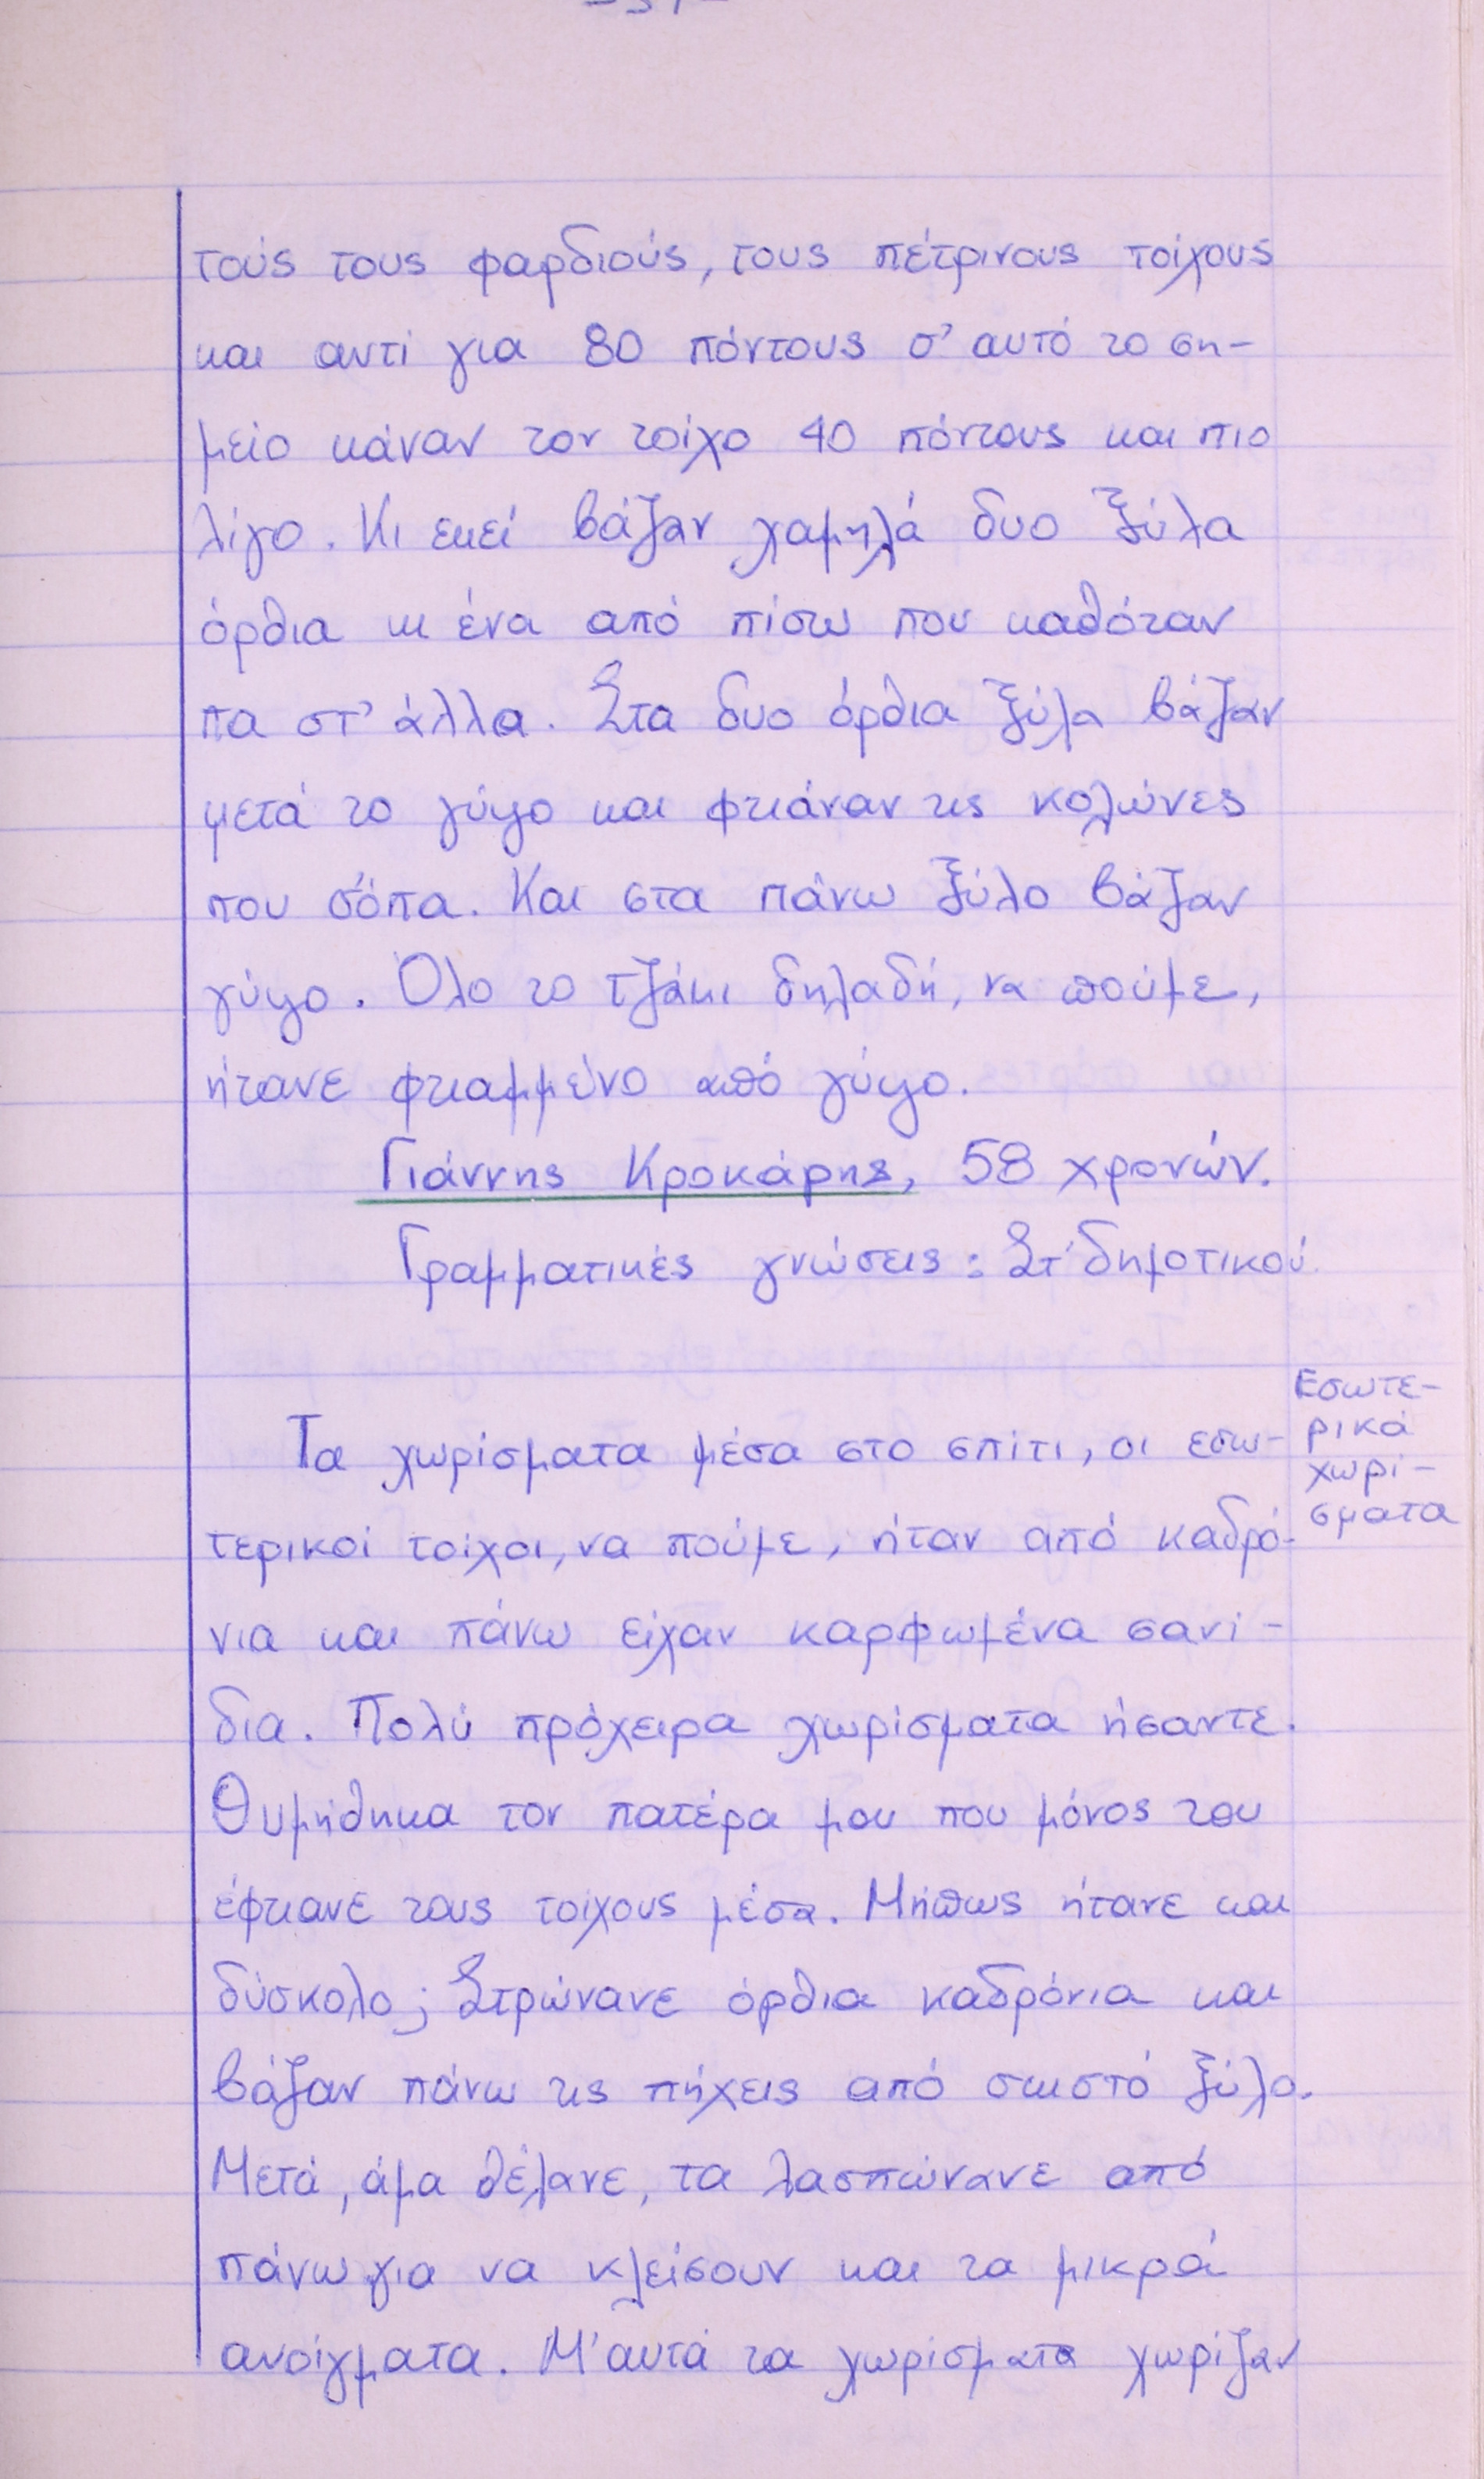 τούς τους φαρδιούς, τους πέτρινους τοίχους
και αντί για 80 πόντους σ' αυτό το ση-
μείο κάναν τον τοίχο 40 πόντους και πιο
λίγο. Κι εκεί βάζαν χαμηλά δυο ξύλα
όρθια κι ένα από πίσω που καθόταν
πα στ' άλλα. Στα δυο όρθια ξύλα βάζαν
μετά το γύψο και φτιάναν τις κολώνες
που σόπα. Και στα πάνω ξύλο βάζαν
γύψο. Όλο το τζάκι δηλαδή, να πούμε,
ήτανε φτιαμμένο από γύψο.
Γιάννης Κροκάρης, 58 χρονών.
Γραμματικές γνώσεις: Στ' δημοτικού
Εσωτε-
ρικά
χωρί-
σματα
Τα χωρίσματα μέσα στο σπίτι, οι εσω-
τερικοί τοίχοι, να πούμε, ήταν από καδρό-
νια και πάνω είχαν καρφωμένα σανί-
δια. Πολύ πρόχειρα χωρίσματα ήσαντε.
Θυμήθηκα τον πατέρα μου που μόνος του
έφτιανε τους τοίχους μέσα. Μήπως ήτανε και
δύσκολο; Στρώνανε όρθια καδρόνια και
βάζαν πάνω τις πήχεις από σωστό ξύλο.
Μετά, άμα θέλανε, τα λασπώνανε από
πάνω για να κλείσουν και τα μικρά
ανοίγματα. Μ' αυτά τα χωρίσματα χωρίζαν